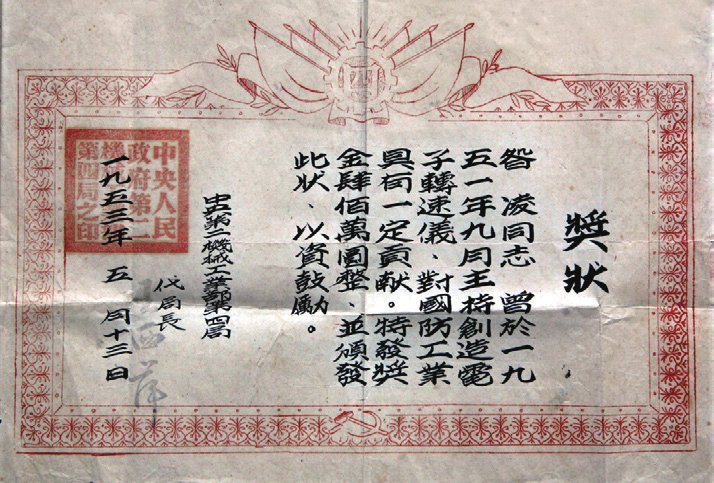 獎狀
昝 凌同志 曾於一九
五一年九月主持創造電
子轉速儀、對國防工業
具有一定貢献。特發獎
金肆佰萬圓整、並頒發
此狀、以資鼓勵。
中央第二機械工業部第四局
代局長
一九五三年 五 月十三日
中央人民
政府第二
機
第四局之印